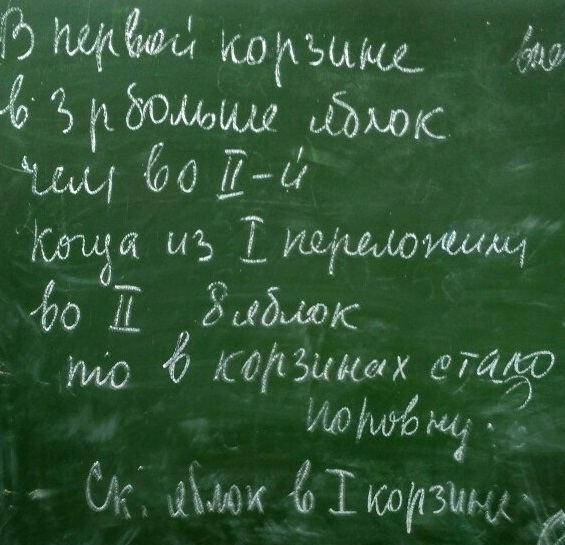 В первой корзине
в 3 р больше яблок
чем во II-й
Когда из I переложили
во II 8 яблок
то в корзинах стало
поровну.
Ск. яблок в I корзине